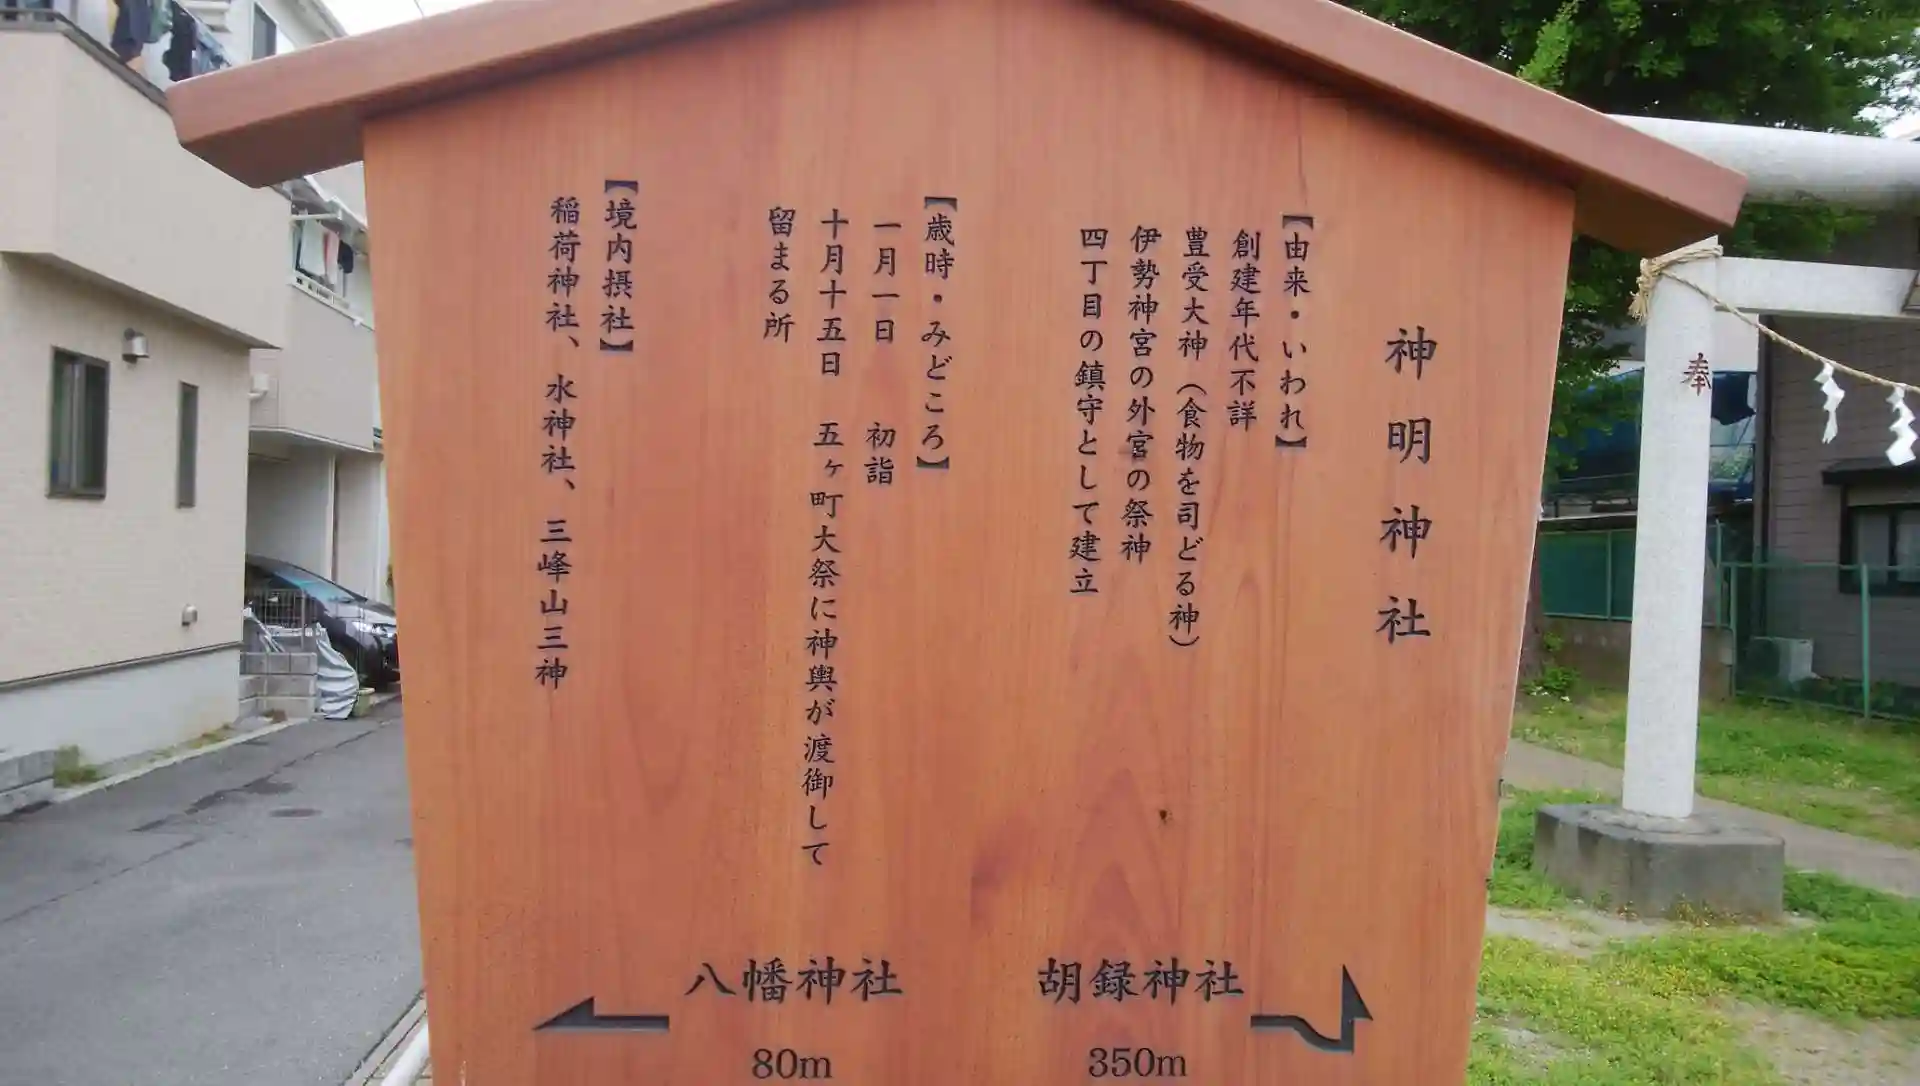 神明神社
【由来・いわれ】
創建年代不詳
豊受大神（食物を司どる神）
伊勢神宮の外宮の祭神
四丁目の鎮守として建立
【歳時・みどころ】
一月一日　初詣
十月十五日　五ヶ町大祭に神輿が渡御して
留まる所
【境内摂社】
稲荷神社、水神社、三峰山三神
八幡神社
80m
胡録神社
350m
奉